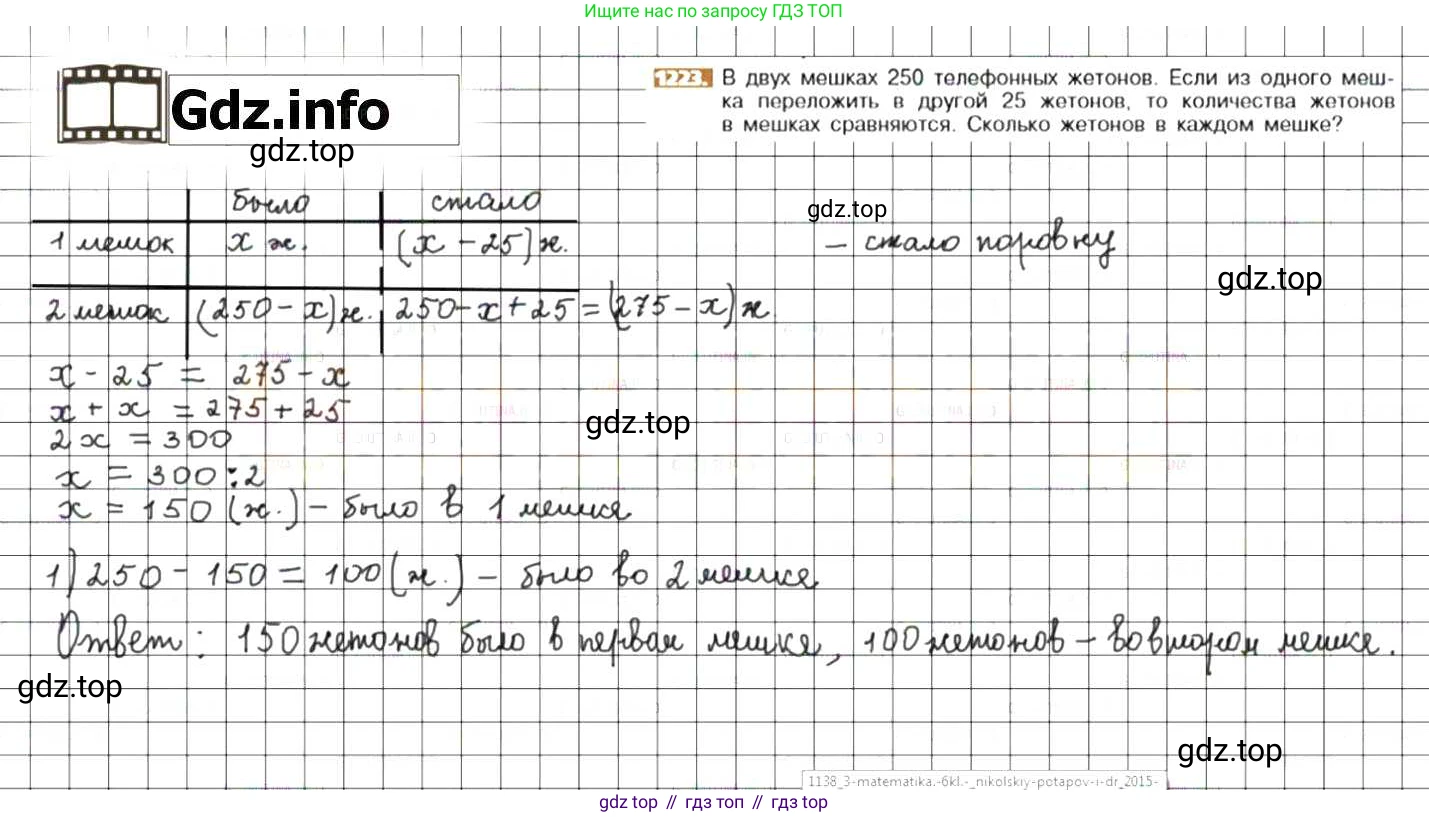 Ищите нас по запросу ГДЗ ТОП
Gdz.info
gdz.top
1223. В двух мешках 250 телефонных жетонов. Если из одного меш-
ка переложить в другой 25 жетонов, то количества жетонов
в мешках сравняются. Сколько жетонов в каждом мешке?
было стало
gdz.top
1 мешок x ж. (x - 25) ж. - стало поровну
gdz.top
2 мешок (250 - x) ж. 250 - x + 25 = (275 - x) ж.
x - 25 = 275 - x
x + x = 275 + 25
gdz.top
2x = 300
x = 300 : 2
x = 150 (ж.) - было в 1 мешке
1) 250 - 150 = 100 (ж.) - было во 2 мешке
Ответ: 150 жетонов было в первом мешке, 100 жетонов - во втором мешке.
gdz.top
gdz.top
1138_3-matematika.-6kl.-_nikolskiy-potapov-i-dr_2015-
gdz top // гдз топ // gdz top